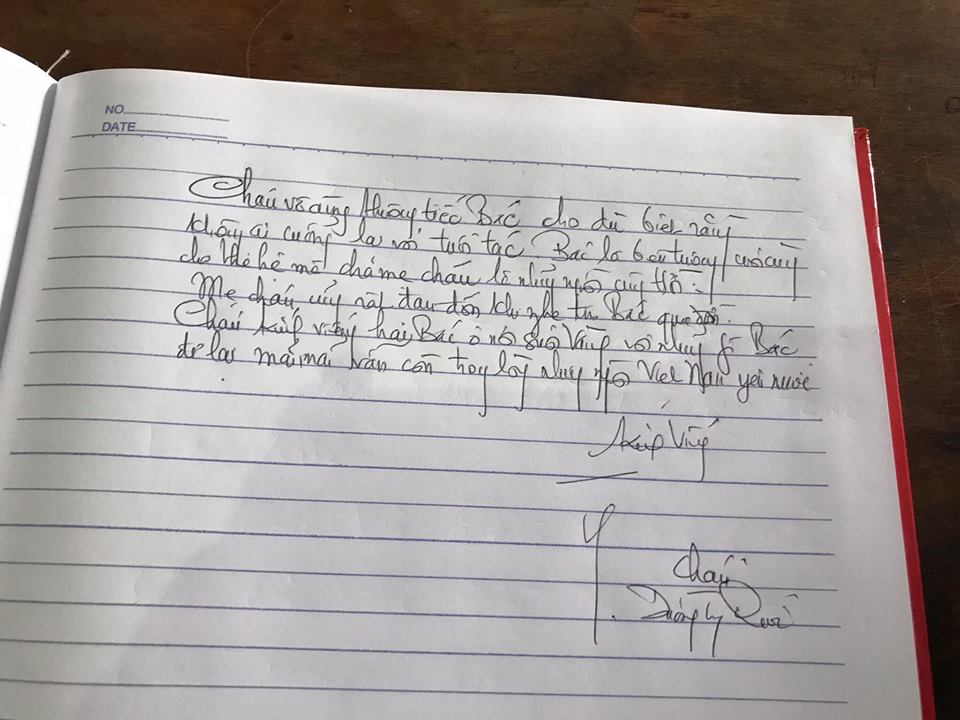 NO
DATE
Cháu vô cùng thương tiếc Bác cho dù biết rằng
không ai cưỡng lại với tuổi tác Bác là bức tường cuối cùng
cho thế hệ mà cha mẹ cháu là những người cùng thời.
Mẹ cháu cũng rất đau đớn khi nghe tin Bác qua đời.
Cháu kính viếng Bác ở nơi suối vàng với những gì Bác
để lại mãi mãi vẫn còn trong lòng những người Việt Nam yêu nước
Kính Viếng
Cháu
Dương